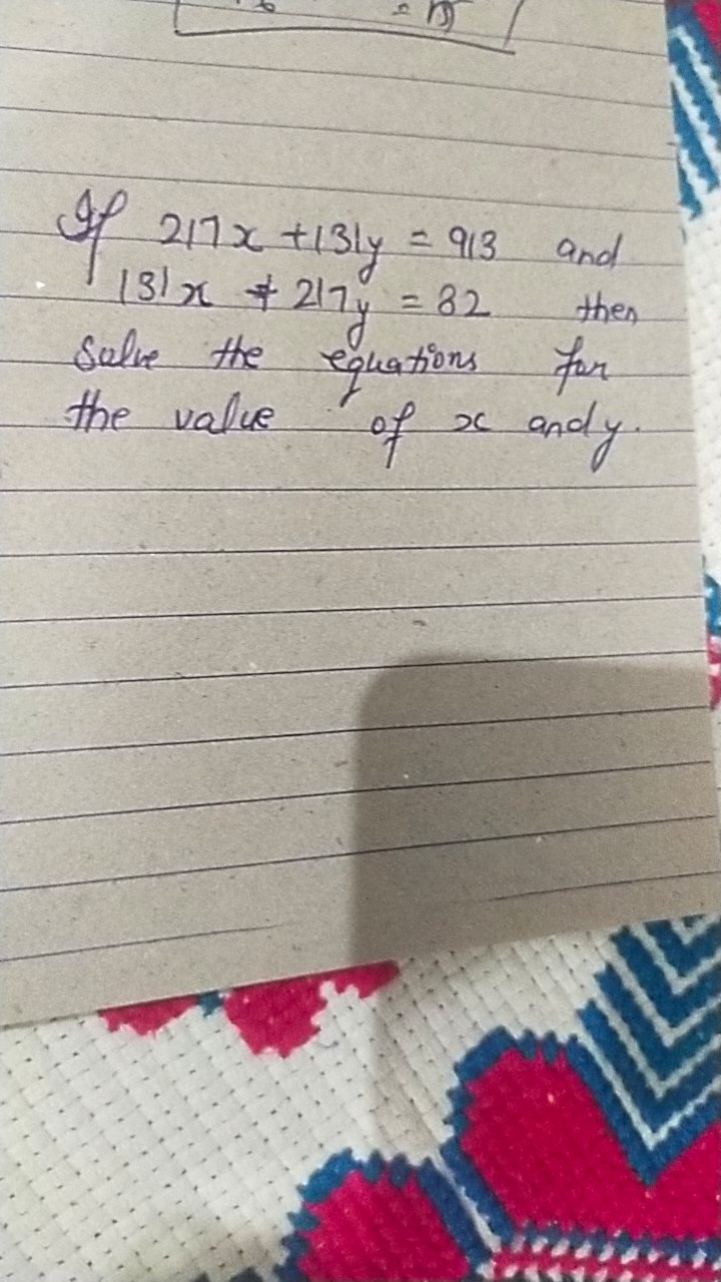 If 217x + 131y = 913 and
131x + 217y = 82 then
Solve the equations for
the value of x and y.